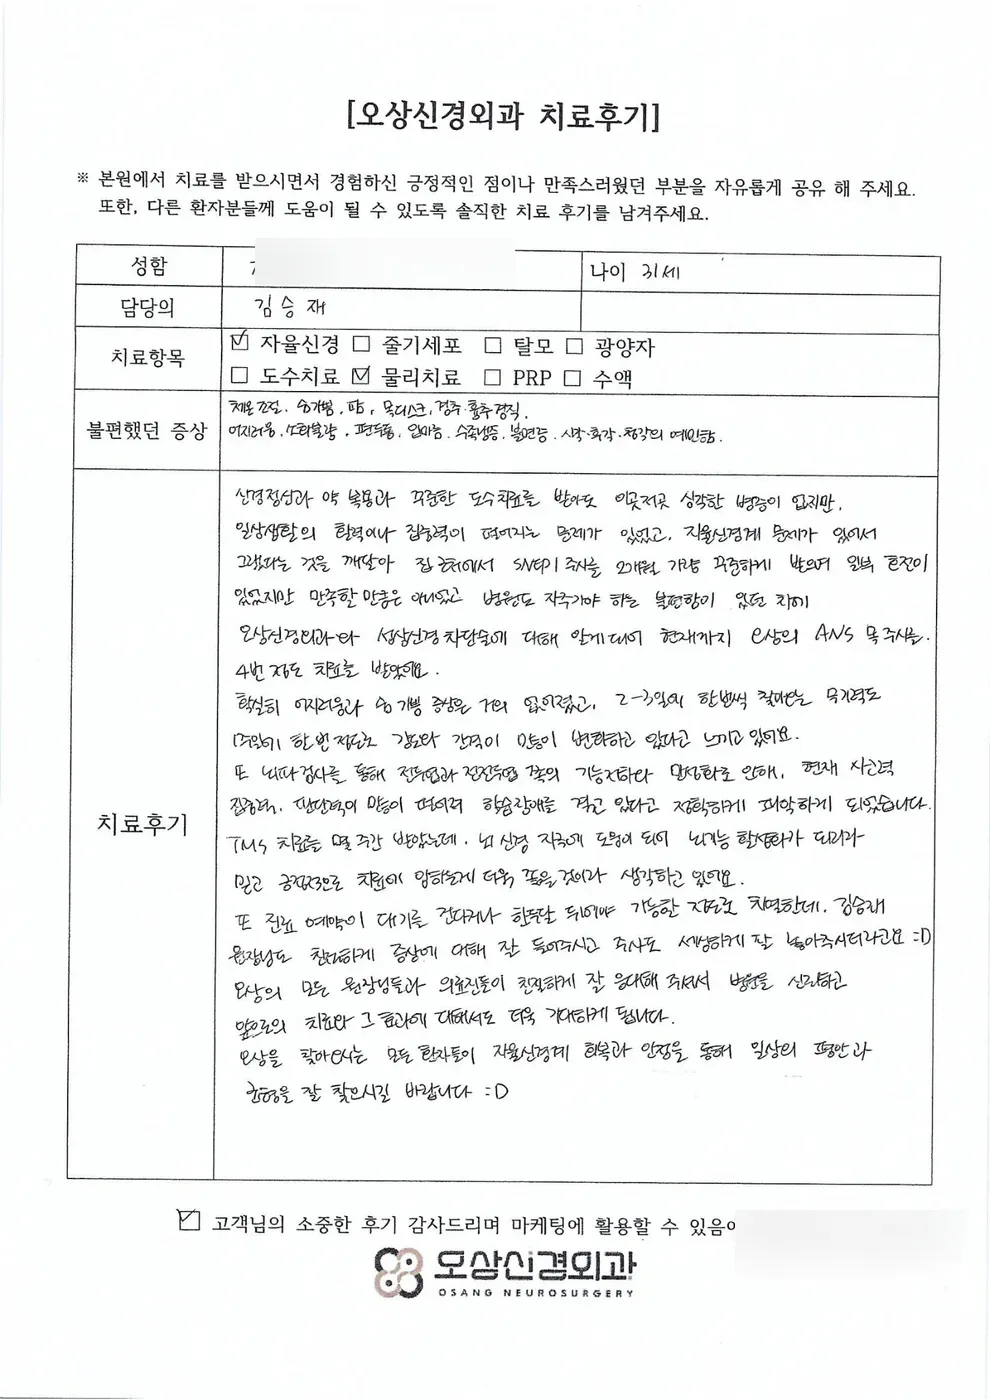 [오상신경외과 치료후기]
※ 본원에서 치료를 받으시면서 경험하신 긍정적인 점이나 만족스러웠던 부분을 자유롭게 공유 해 주세요.
또한, 다른 환자분들께 도움이 될 수 있도록 솔직한 치료 후기를 남겨주세요.
성함 나이 31세
담당의 김승재
치료항목 ☑ 자율신경 ☐ 줄기세포 ☐ 탈모 ☐ 광양자
☐ 도수치료 ☑ 물리치료 ☐ PRP ☐ 수액
불편했던 증상 체온조절, 숨가쁨, 땀, 목디스크, 경추·흉추경직,
어지러움, 소화불량, 편두통, 입마름, 수족냉증, 불면증, 시각·촉각·청각의 예민함.
치료후기
신경정신과 약 복용과 꾸준한 도수치료를 받아도 이곳저곳 심각한 병증이 없지만,
일상생활의 활력이나 집중력이 떨어지는 문제가 있었고, 자율신경계 문제가 있어서
그랬다는 것을 깨달아 집 근처에서 SNEPI 주사를 2개월 가량 꾸준하게 받으며 일부 호전이
있었지만 만족할 만큼은 아니었고 병원도 자주가야 하는 불편함이 있던 차에
오상신경외과와 성상신경차단술에 대해 알게되어 현재까지 오상의 ANS 목주사를
4번 정도 치료를 받았어요.
확실히 어지러움과 숨가쁨 증상은 거의 없어졌고, 2-3일에 한번씩 찾아오는 무기력도
일주일에 한 번 정도로 강도와 간격이 많이 변화하고 있다고 느끼고 있어요.
또 뇌파검사를 통해 전두엽과 전전두엽 쪽의 기능저하와 만성화로 인해, 현재 사고력
집중력, 판단력이 많이 떨어져 학습장애를 겪고 있다고 정확하게 파악하게 되었습니다.
TMS 치료를 몇 주간 받았는데, 뇌 신경 자극에 도움이 되어 뇌기능 활성화가 되리라
믿고 긍정적으로 치료에 임하는게 더욱 좋을것이라 생각하고 있어요.
또 진료 예약이 대기를 건다거나 한두달 뒤에야 가능한 정도로 치열한데, 김승재
원장님도 친절하게 증상에 대해 잘 들어주시고 주사도 세심하게 잘 놓아주시더라고요 :D
오상의 모든 원장님들과 의료진들이 친절하게 잘 응대해 주셔서 병원을 신뢰하고
앞으로의 치료와 그 효과에 대해서도 더욱 기대하게 됩니다.
오상을 찾아오시는 모든 환자들이 자율신경계 회복과 안정을 통해 일상의 평안과
균형을 잘 찾으시길 바랍니다 :D
☑ 고객님의 소중한 후기 감사드리며 마케팅에 활용할 수 있음
오상신경외과
OSANG NEUROSURGERY